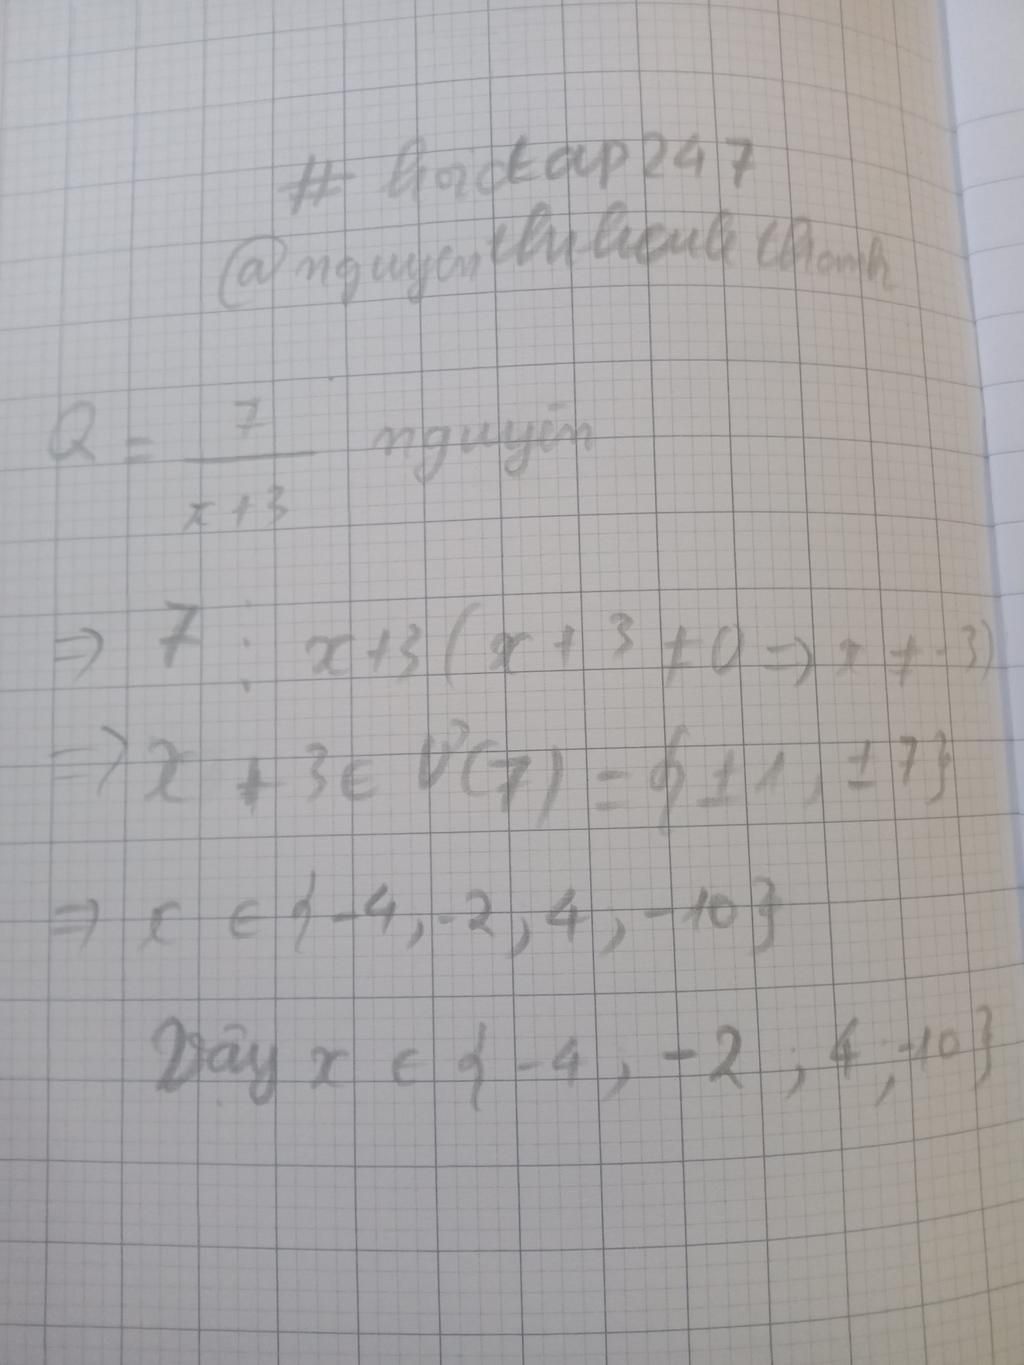 # hoctap247
@nguyenthi thanh
Q = 7/(x+3) nguyên
⇒ 7 ⋮ x+3 (x + 3 ≠ 0 ⇒ x ≠ -3)
⇒ x + 3 ∈ Ư(7) = {±1, ±7}
⇒ x ∈ {-4, -2, 4, -10}
Vậy x ∈ {-4; -2; 4; -10}